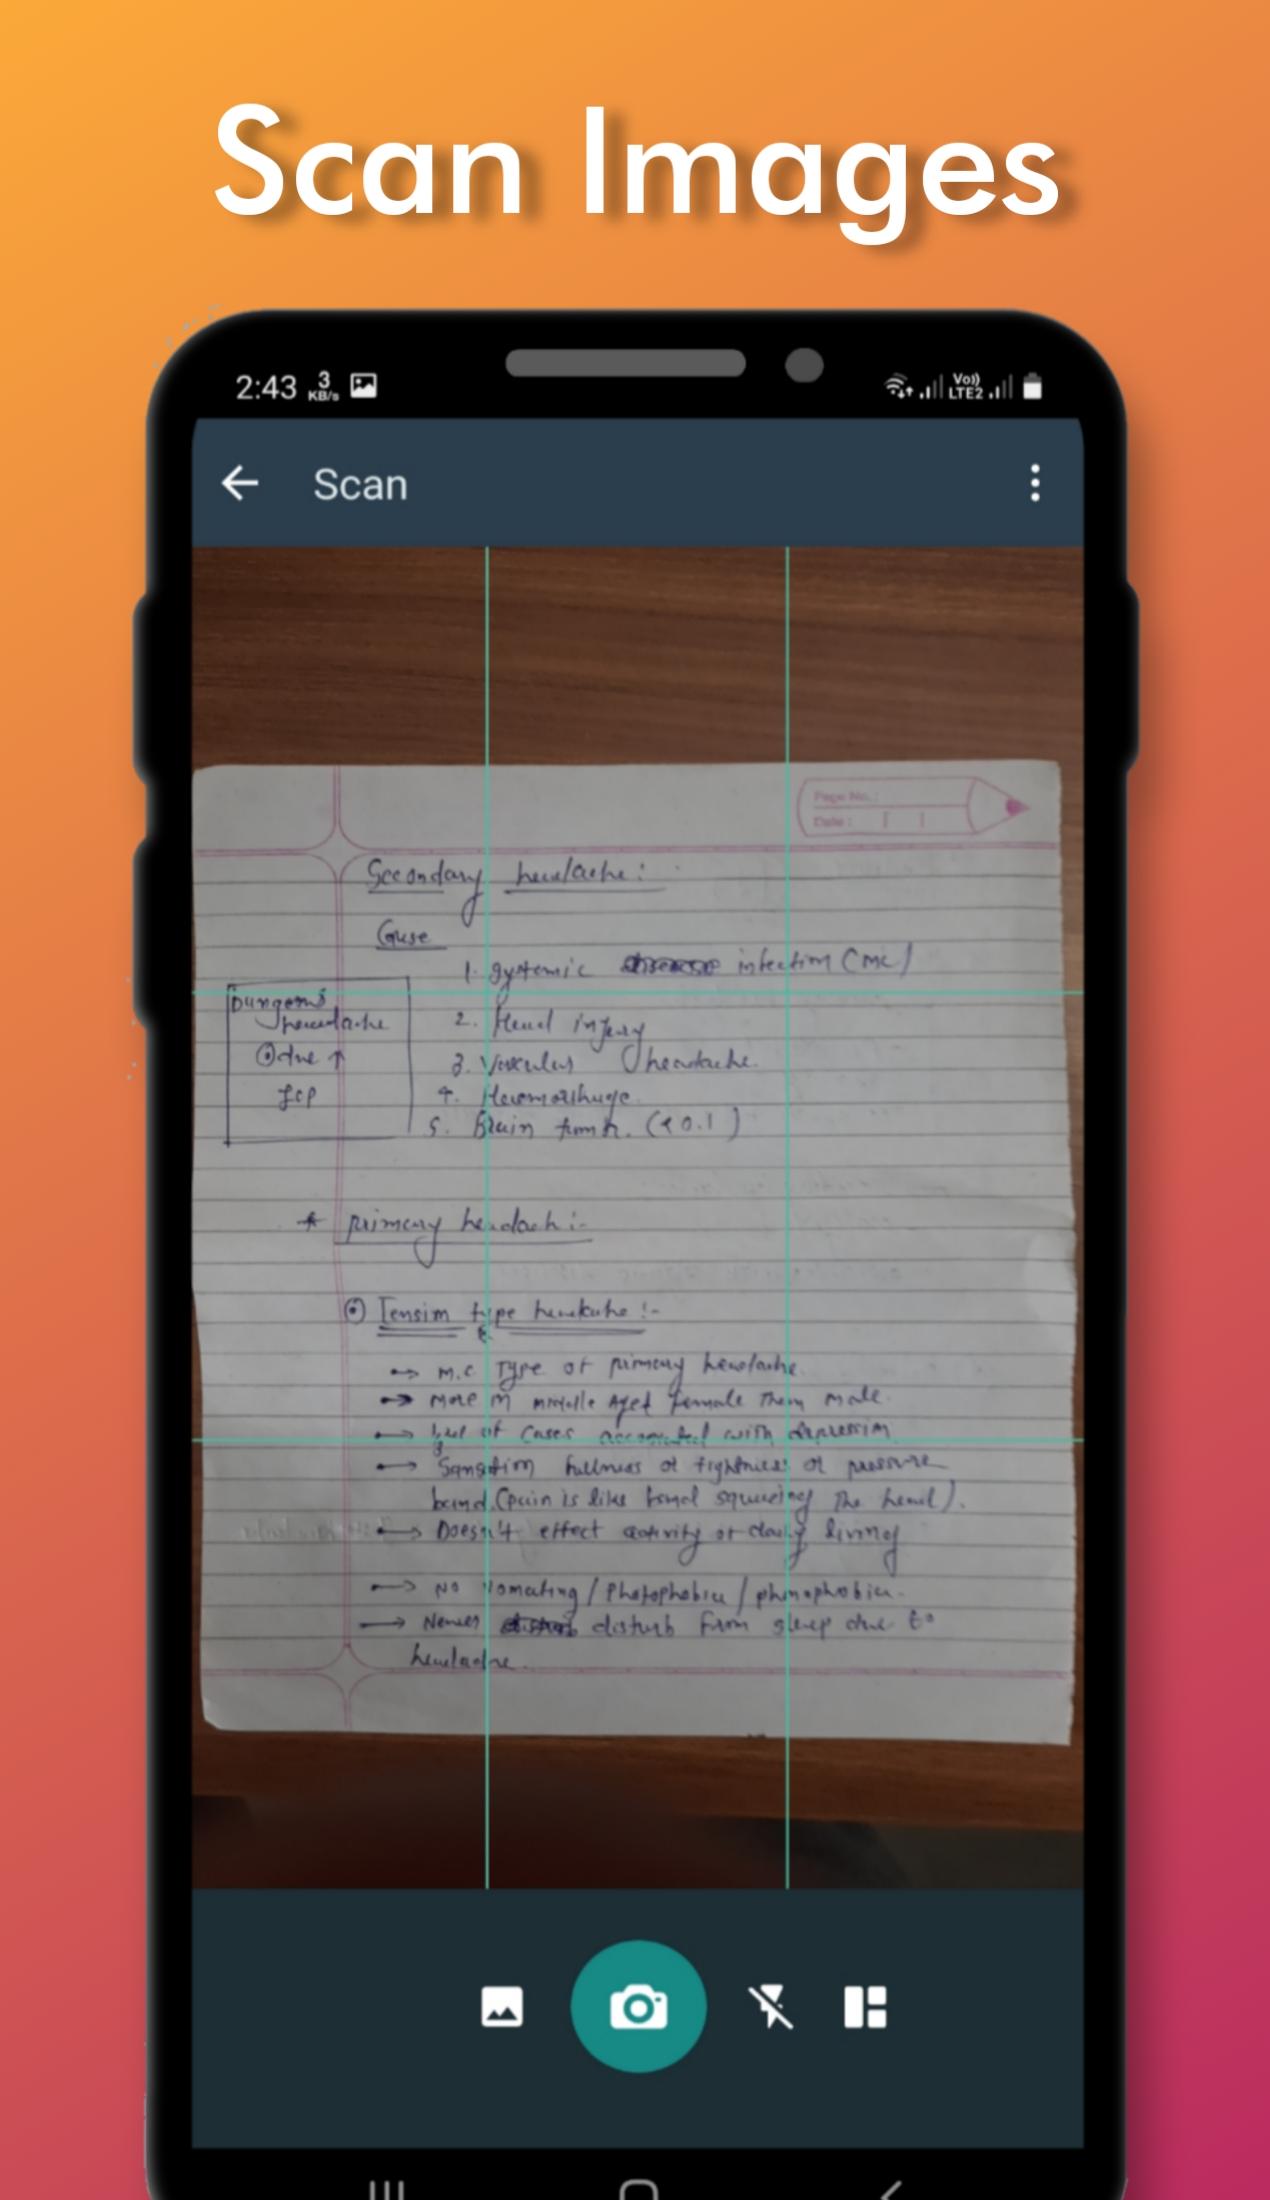 Scan Images
2:43 3 KB/s Vo)) LTE2
Scan
Page No.:
Date:
Secondary headache:
Cause
1. Systemic infection (mc)
Dangerous
headache
due ↑
ICP
2. Head injury
3. Vascular headache.
4. Haemorrhage.
5. Brain (<0.1)
* primary headach:-
Tension type headache:-
→ m.c Type of primary headache.
→ More in middle Aged female Than male.
→ of cases with depression
→ fullness or tightness or pressure
band. (pain is like band squeezing The head).
→ Doesn't effect activity of daily living
→ No Vomating / Photophobia / phonophobia.
→ Never disturb from sleep due to
headache.